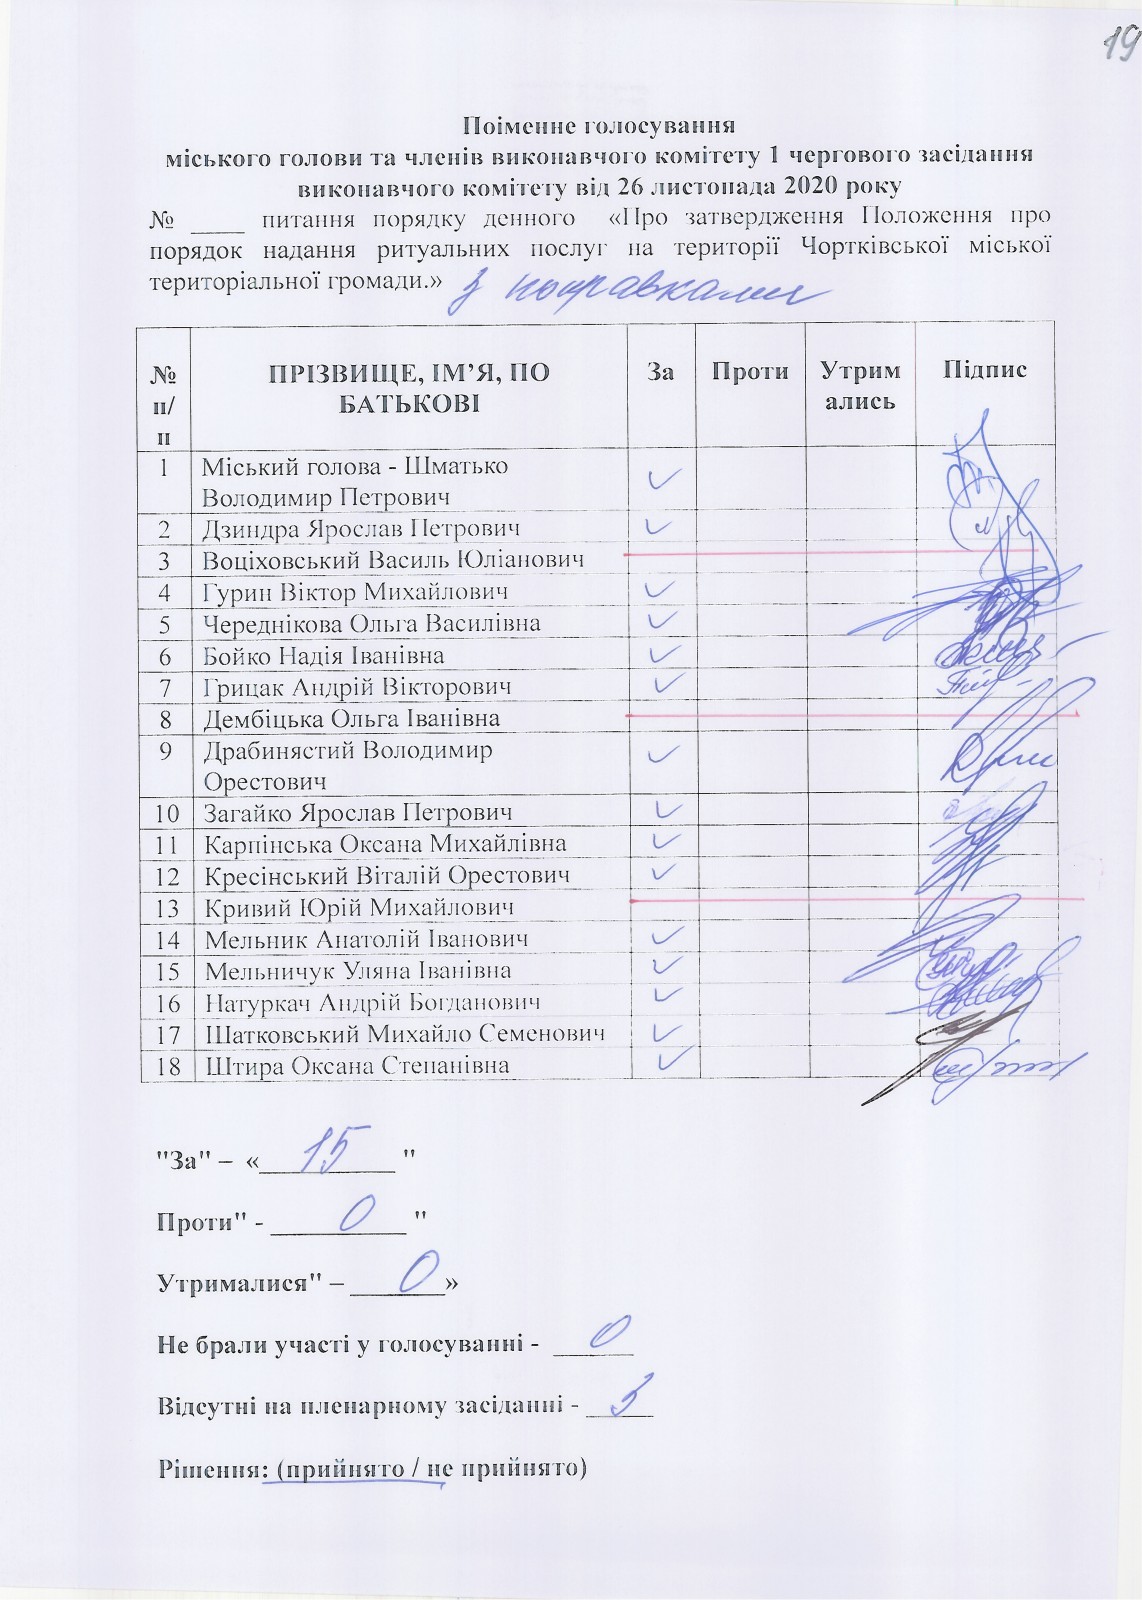 19
Поіменне голосування
міського голови та членів виконавчого комітету 1 чергового засідання
виконавчого комітету від 26 листопада 2020 року
№ ____ питання порядку денного «Про затвердження Положення про
порядок надання ритуальних послуг на території Чортківської міської
територіальної громади.» з поправками
№ п/п ПРІЗВИЩЕ, ІМ’Я, ПО БАТЬКОВІ За Проти Утрим ались Підпис
1 Міський голова - Шматько
Володимир Петрович ✓
2 Дзиндра Ярослав Петрович ✓
3 Воціховський Василь Юліанович
4 Гурин Віктор Михайлович ✓
5 Череднікова Ольга Василівна ✓
6 Бойко Надія Іванівна ✓
7 Грицак Андрій Вікторович ✓
8 Дембіцька Ольга Іванівна
9 Драбинястий Володимир
Орестович ✓
10 Загайко Ярослав Петрович ✓
11 Карпінська Оксана Михайлівна ✓
12 Кресінський Віталій Орестович ✓
13 Кривий Юрій Михайлович
14 Мельник Анатолій Іванович ✓
15 Мельничук Уляна Іванівна ✓
16 Натуркач Андрій Богданович ✓
17 Шатковський Михайло Семенович ✓
18 Штира Оксана Степанівна ✓
"За" – «___15___ "
Проти" - ___0___ "
Утрималися" – ___0___»
Не брали участі у голосуванні - ___0___
Відсутні на пленарному засіданні - ___3___
Рішення: (прийнято / не прийнято)